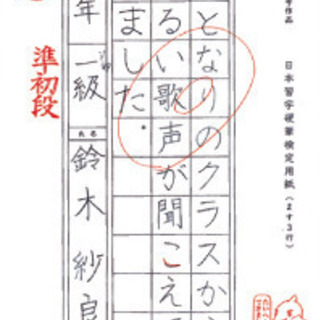 日本習字硬筆検定用紙（ます3行）
となりのクラスか
るい歌声が聞こえ
ました。
年 一級 氏名 鈴木 紗良
準初段